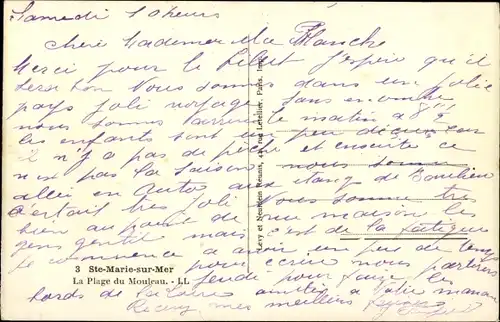 Samedi 10 heures
Chère Mademoiselle Blanche
Merci pour le billet j'espère qu'il
sera bon Nous sommes dans un jolie
pays joli voyage sans en
nous sommes arrivée le matin a 8 h
les enfants sont un peu déçus car
il n'y a pas de pêche et ensuite ce
n'ai pas la saison nous somme
allée en Auto aux étang de
c'ertait très joli Nous somme très
bien au point de vue maison les
gens gentil mais c'est de la fatigue
Je commence a avoir un peu de temps
pour écrire nous partirons
jeudi pour faire les
bords de la Loire amitiés a Votre maman
Recevez mes meilleurs
3 Ste-Marie-sur-Mer
La Plage du Mouleau. - LL
Lévy et Neurdein Réunis, 44, rue Letellier, Paris. Imp.